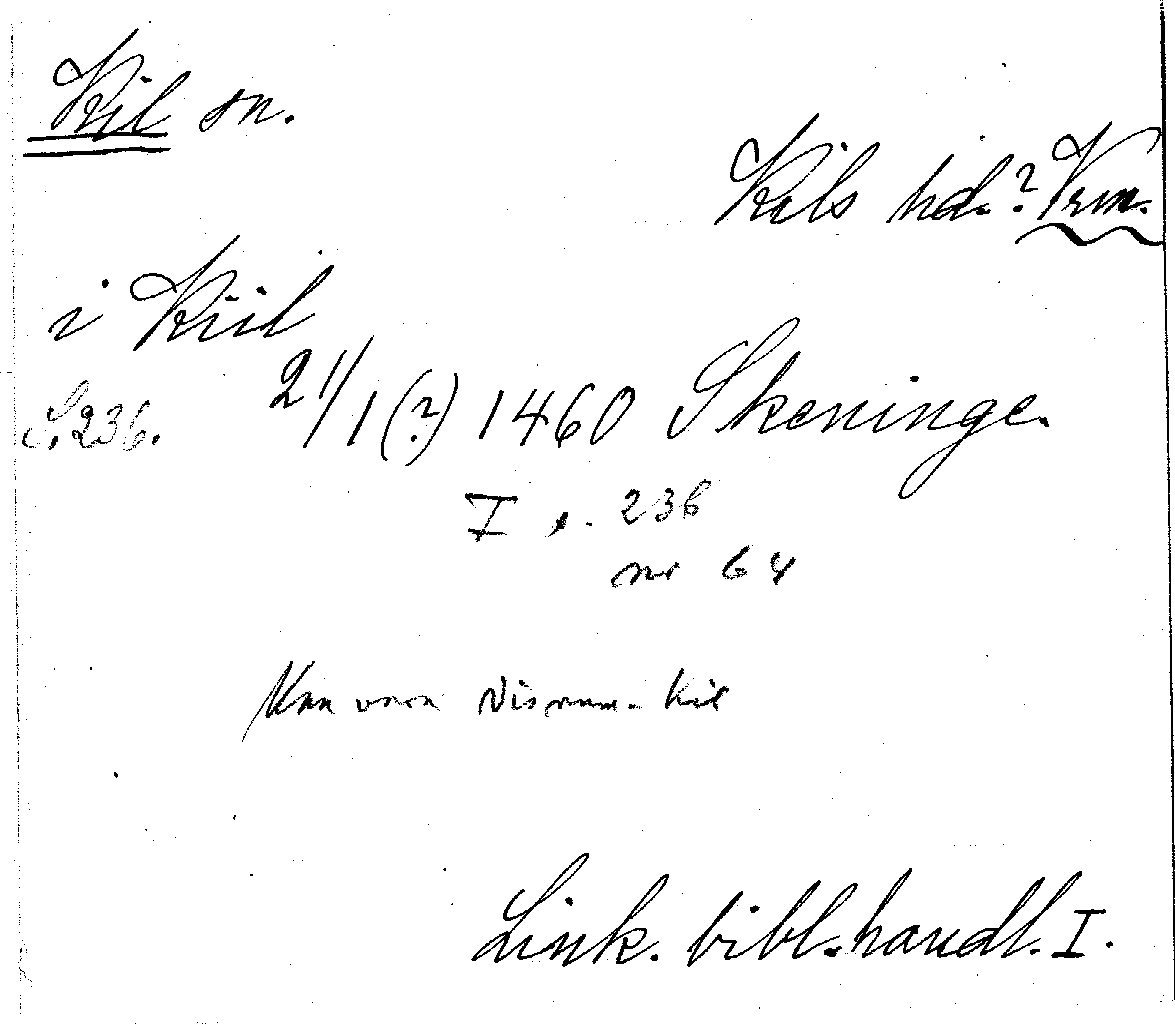 Kil sn.
Kils hd.? Vrm.
i Kiil
21/1(?) 1460 Skeninge.
S. 236.
I s. 236
nr 64
Kan vara Kil
Link. bibl. handl. I.